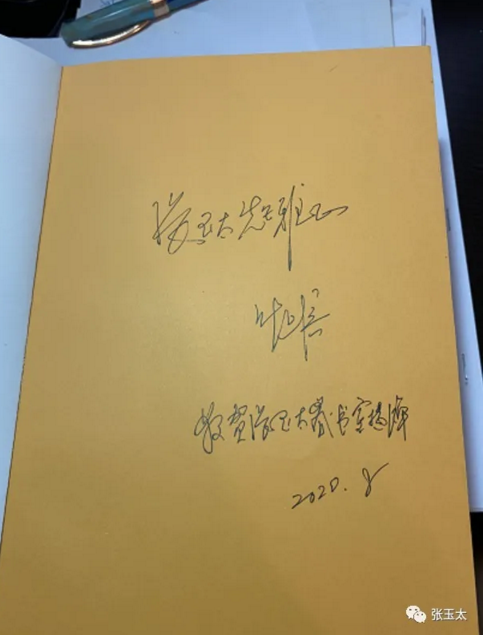 张玉太先生雅正
敬贺张玉太藏书室揭牌
2020.8
张玉太